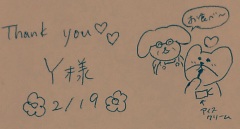 Thank you♡♡
Y様
2/19
お食べ〜
アイス
クリーム